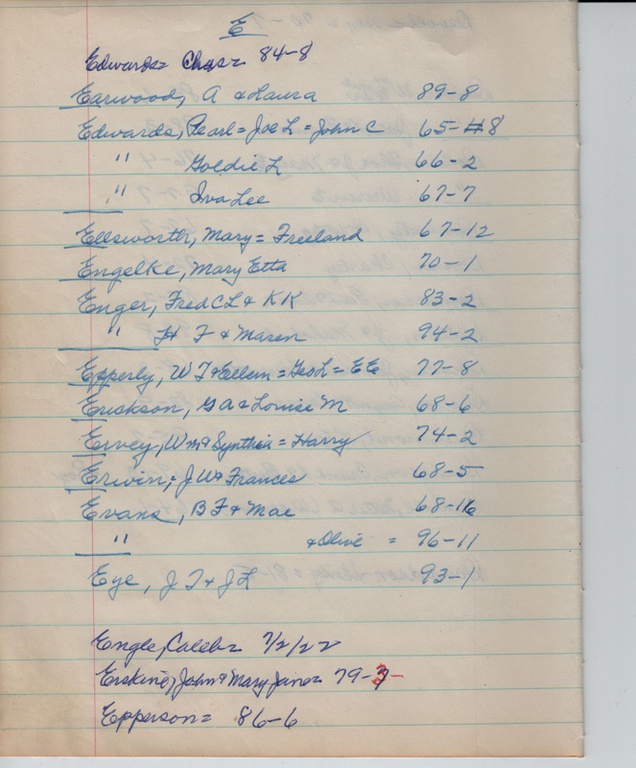 E
Edwards = Chas = 84-8
Earwood, A & Laura 89-8
Edwards, Pearl = Joe L = John C 65-#8
" Goldie L 66-2
" Iva Lee 67-7
Ellsworth, Mary = Freeland 67-12
Engelke, Mary Etta 70-1
Enger, Fred C L & K K 83-2
" H F & Maren 94-2
Epperly, W T & Eellem = Geo L = E E 77-8
Erickson, G A & Louise M 68-6
Ervey, Wm & Synthia = Harry 74-2
Erwin, J W & Frances 68-5
Evans, B F & Mae 68-
" & Olive = 96-11
Eye, J T & J L 93-1
Engle, Caleb = 7/2/22
Erskine, John & Mary Jane = 79-
Epperson = 86-6